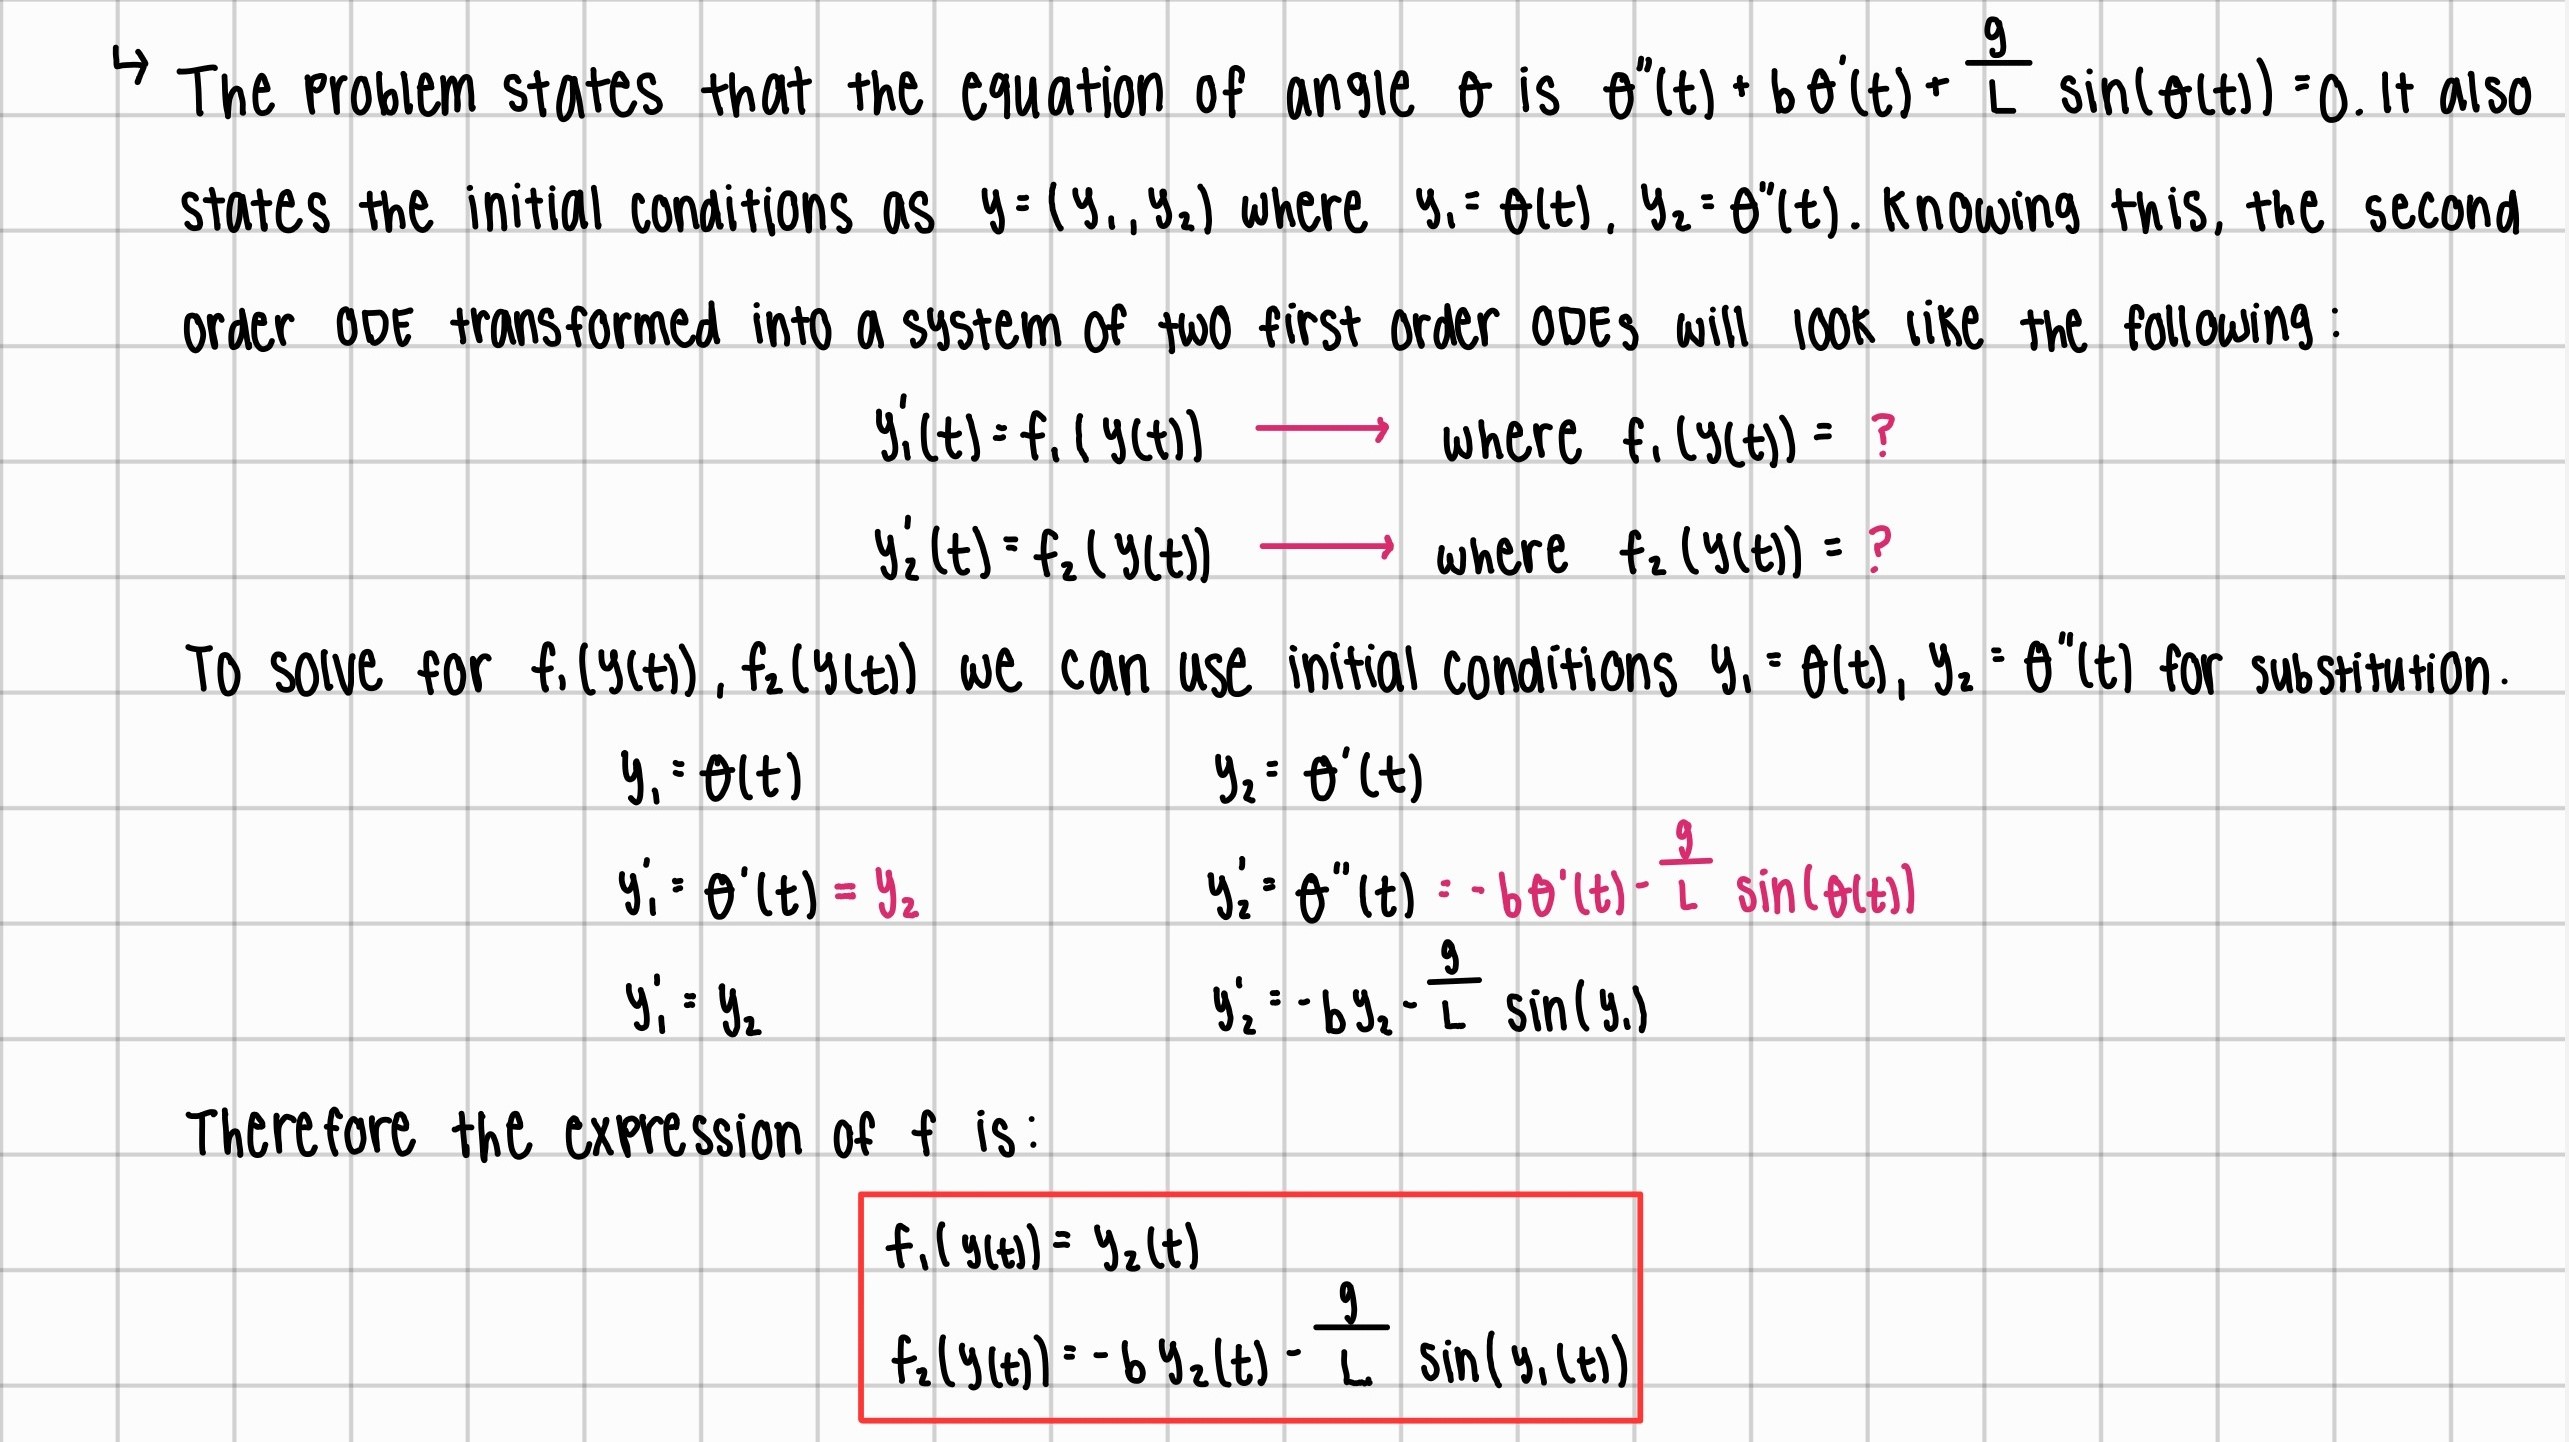 ↳ The problem states that the equation of angle θ is θ''(t) + bθ'(t) + g/L sin(θ(t)) = 0. It also
states the initial conditions as y = (y₁, y₂) where y₁ = θ(t), y₂ = θ''(t). Knowing this, the second
order ODE transformed into a system of two first order ODEs will look like the following:
y₁'(t) = f₁(y(t)) → where f₁(y(t)) = ?
y₂'(t) = f₂(y(t)) → where f₂(y(t)) = ?
To solve for f₁(y(t)), f₂(y(t)) we can use initial conditions y₁ = θ(t), y₂ = θ''(t) for substitution.
y₁ = θ(t) y₂ = θ'(t)
y₁' = θ'(t) = y₂ y₂' = θ''(t) = -bθ'(t) - g/L sin(θ(t))
y₁' = y₂ y₂' = -by₂ - g/L sin(y₁)
Therefore the expression of f is:
f₁(y(t)) = y₂(t)
f₂(y(t)) = -by₂(t) - g/L sin(y₁(t))